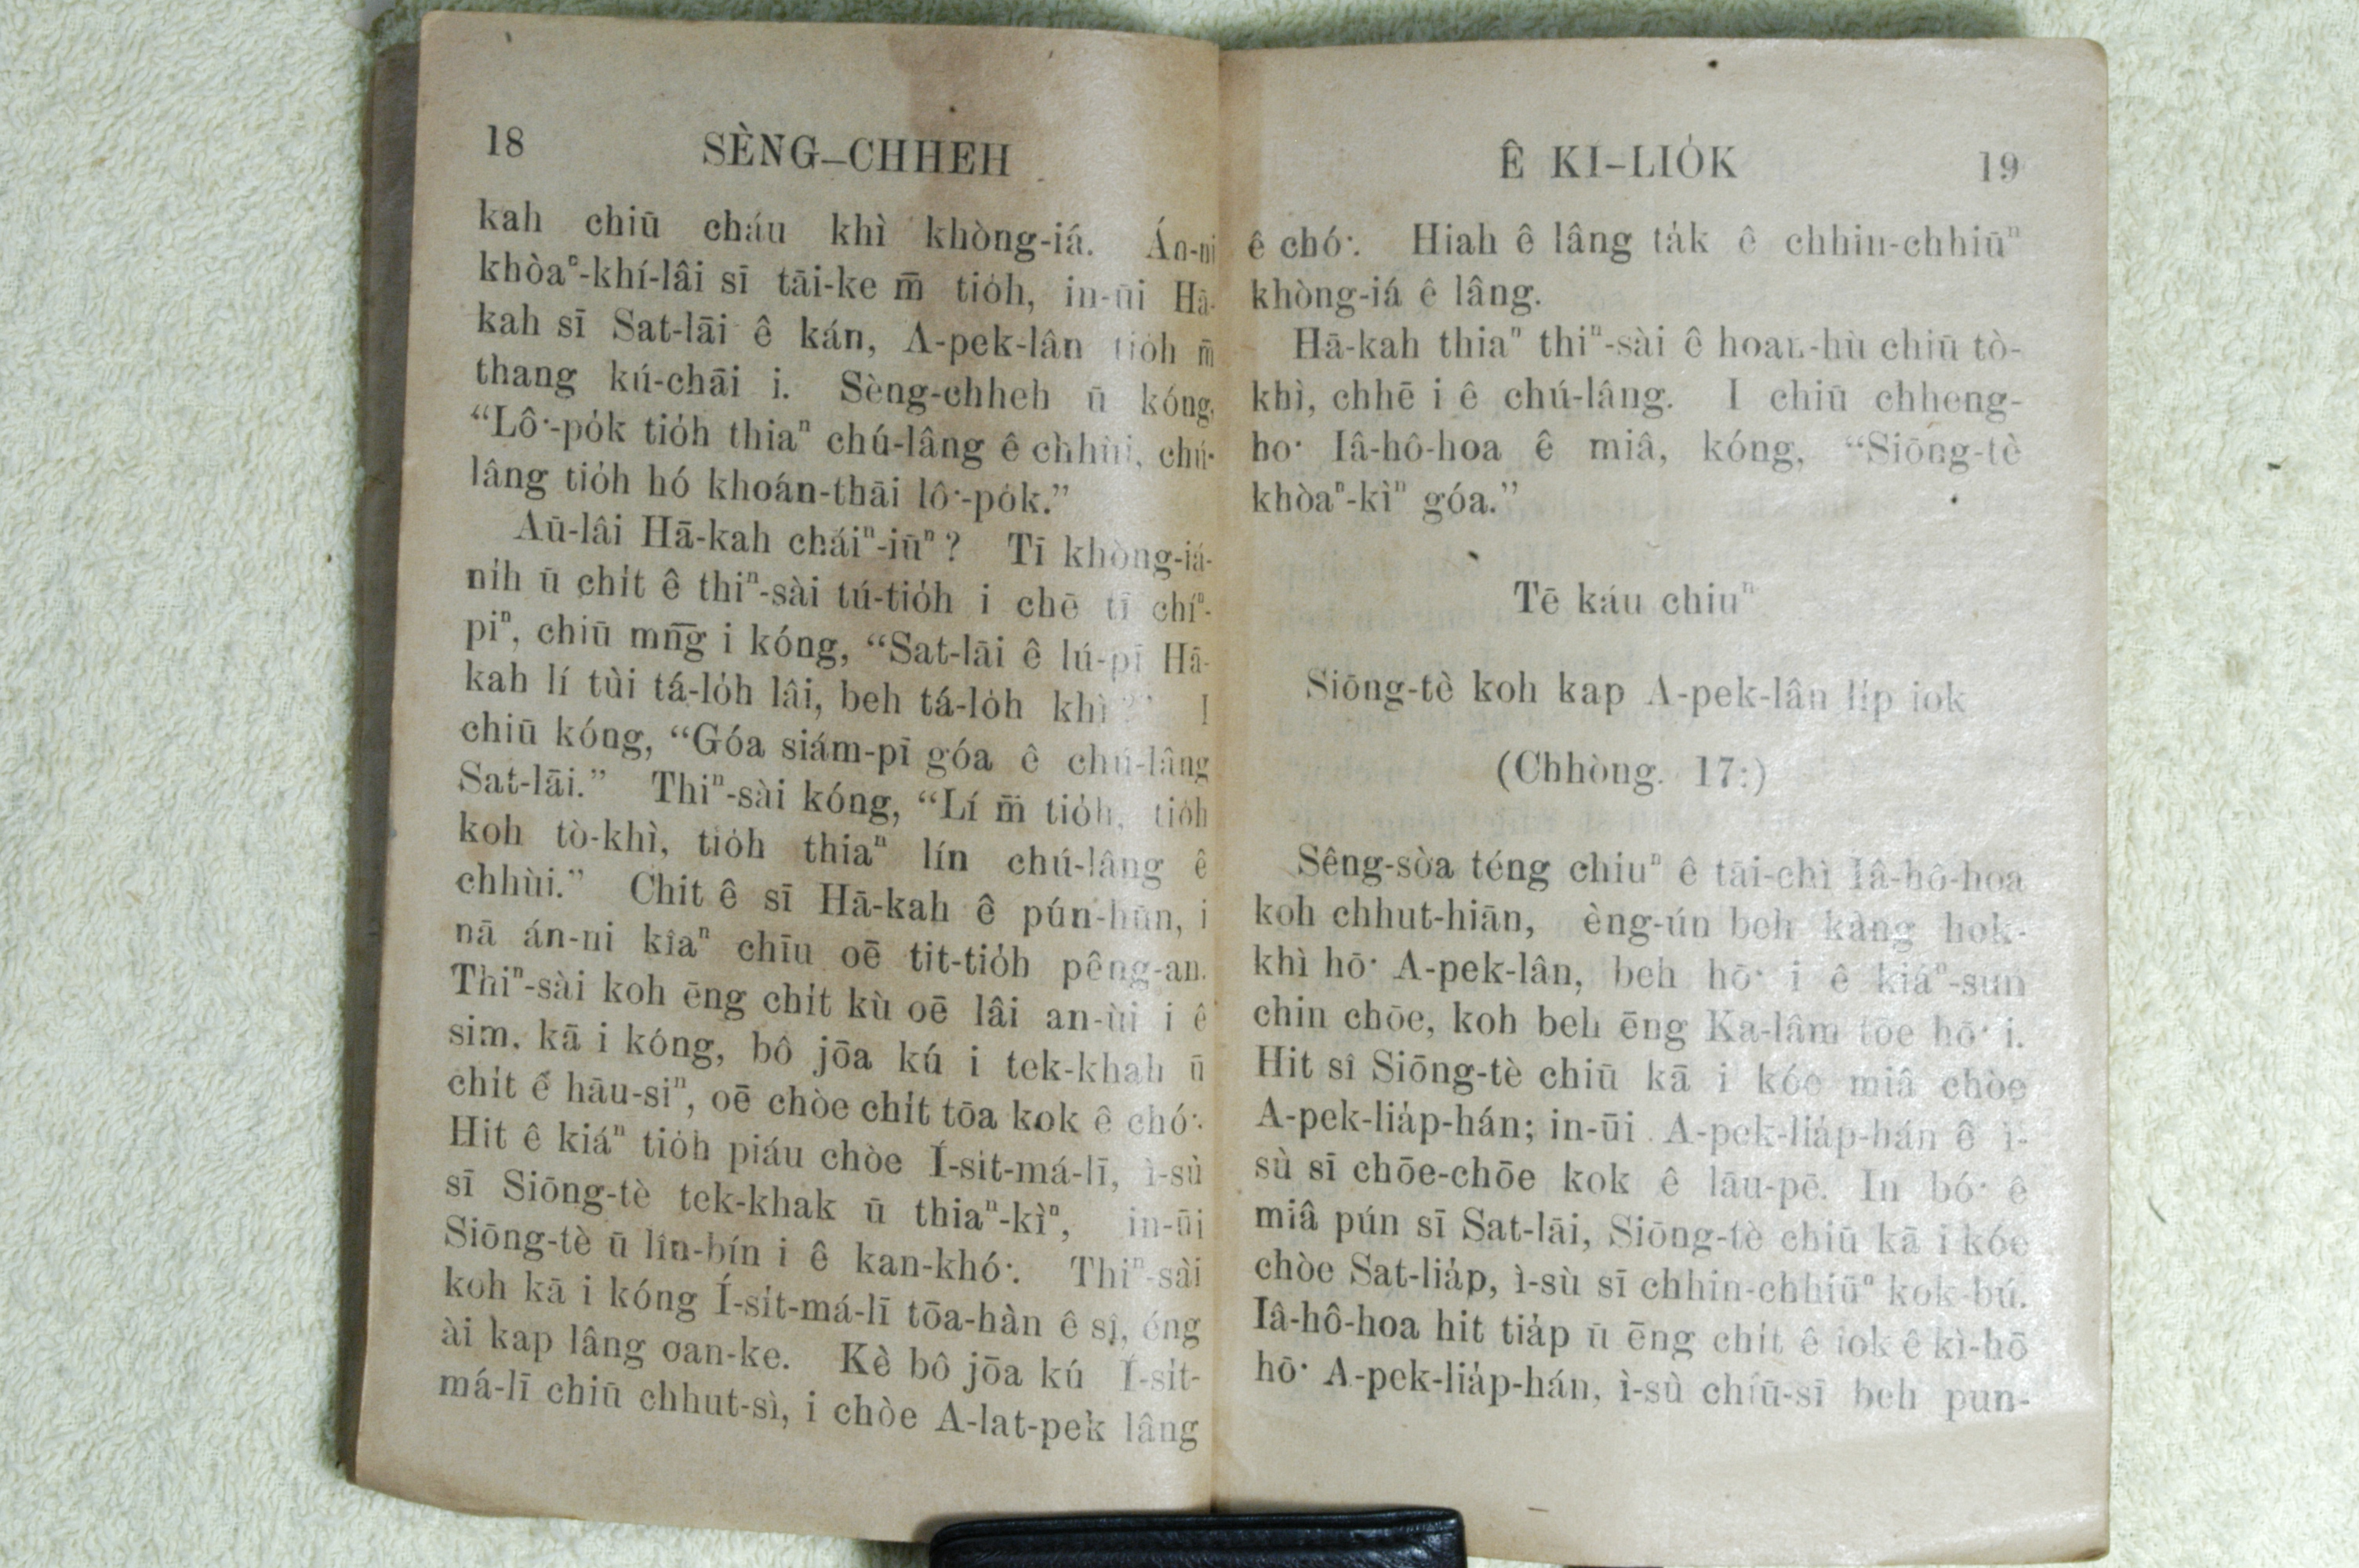 18 SÈNG–CHHEH
kah chiū cháu khì khòng-iá. Án-ni
khòaⁿ-khí-lâi sī tāi-ke m̄ tio̍h, in-ūi Hā-
kah sī Sat-lāi ê kán, A-pek-lân tio̍h m̄
thang kú-chāi i. Sèng-chheh ū kóng,
“Lô͘-po̍k tio̍h thiaⁿ chú-lâng ê chhùi, chú-
lâng tio̍h hó khoán-thāi lô͘-po̍k.”
Aū-lâi Hā-kah cháiⁿ-iūⁿ? Tī khòng-iá-
ni̍h ū chi̍t ê thiⁿ-sài tú-tio̍h i chē tī chíⁿ-
piⁿ, chiū mn̄g i kóng, “Sat-lāi ê lú-pī Hā-
kah lí tùi tá-lo̍h lâi, beh tá-lo̍h khì?” I
chiū kóng, “Góa siám-pī góa ê chú-lâng
Sat-lāi.” Thiⁿ-sài kóng, “Lí m̄ tio̍h, tio̍h
koh tò-khì, tio̍h thiaⁿ lín chú-lâng ê
chhùi.” Chit ê sī Hā-kah ê pún-hūn, i
nā án-ni kîaⁿ chīu oē tit-tio̍h pêng-an.
Thiⁿ-sài koh ēng chi̍t kù oē lâi an-ùi i ê
sim, kā i kóng, bô jōa kú i tek-khah ū
chi̍t ê hāu-siⁿ, oē chòe chi̍t tōa kok ê chó͘.
Hit ê kiáⁿ tio̍h piáu chòe Í-si̍t-má-lī, ì-sù
sī Siōng-tè tek-khak ū thiaⁿ-kìⁿ, in-ūi
Siōng-tè ū lîn-bín i ê kan-khó͘. Thiⁿ-sài
koh kā i kóng Í-si̍t-má-lī tōa-hàn ê sî, éng
ài kap lâng oan-ke. Kè bô jōa kú Í-si̍t-
má-lī chiū chhut-sì, i chòe A-lat-pek lâng
Ê KI–LIO̍K 19
ê chó͘. Hiah ê lâng ta̍k ê chhin-chhiūⁿ
khòng-iá ê lâng.
Hā-kah thiaⁿ thiⁿ-sài ê hoan-hù chiū tò-
khì, chhē i ê chú-lâng. I chiū chheng-
ho͘ Iâ-hô-hoa ê miâ, kóng, “Siōng-tè
khòaⁿ-kìⁿ góa.”
Tē káu chiuⁿ
Siōng-tè koh kap A-pek-lân li̍p iok
(Chhòng. 17:)
Sêng-sòa téng chiuⁿ ê tāi-chì Iâ-hô-hoa
koh chhut-hiān, èng-ún beh kàng hok-
khì hō͘ A-pek-lân, beh hō͘ i ê kiáⁿ-sun
chin chōe, koh beh ēng Ka-lâm tōe hō͘ i.
Hit sî Siōng-tè chiū kā i kóe miâ chòe
A-pek-lia̍p-hán; in-ūi A-pek-lia̍p-hán ê ì-
sù sī chōe-chōe kok ê lāu-pē. In bó͘ ê
miâ pún sī Sat-lāi, Siōng-tè chiū kā i kóe
chòe Sat-lia̍p, ì-sù sī chhin-chhiūⁿ kok-bú.
Iâ-hô-hoa hit tia̍p ū ēng chi̍t ê iok ê kì-hō
hō͘ A-pek-lia̍p-hán, ì-sù chiū-sī beh pun-